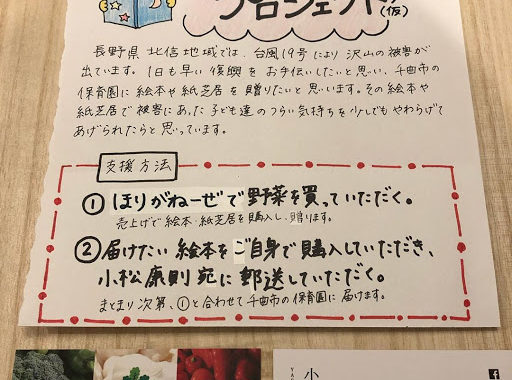 プロジェクト(仮)
長野県 北信地域では、台風19号により 沢山の被害が
出ています。1日も早い 復興を お手伝いしたいと思い、千曲市の
保育園に 絵本や 紙芝居を 贈りたいと 思います。その絵本や
紙芝居で 被害にあった 子ども達の つらい気持ちを 少しでも やわらげて
あげられたらと 思っています。
支援方法
① ほりがねーぜで 野菜を 買っていただく。
売上げで 絵本・紙芝居を 購入し、贈ります。
② 届けたい 絵本を ご自身で 購入していただき、
小松 康則 宛に 郵送していただく。
まとまり次第、①と合わせて 千曲市の 保育園に 届けます。
小